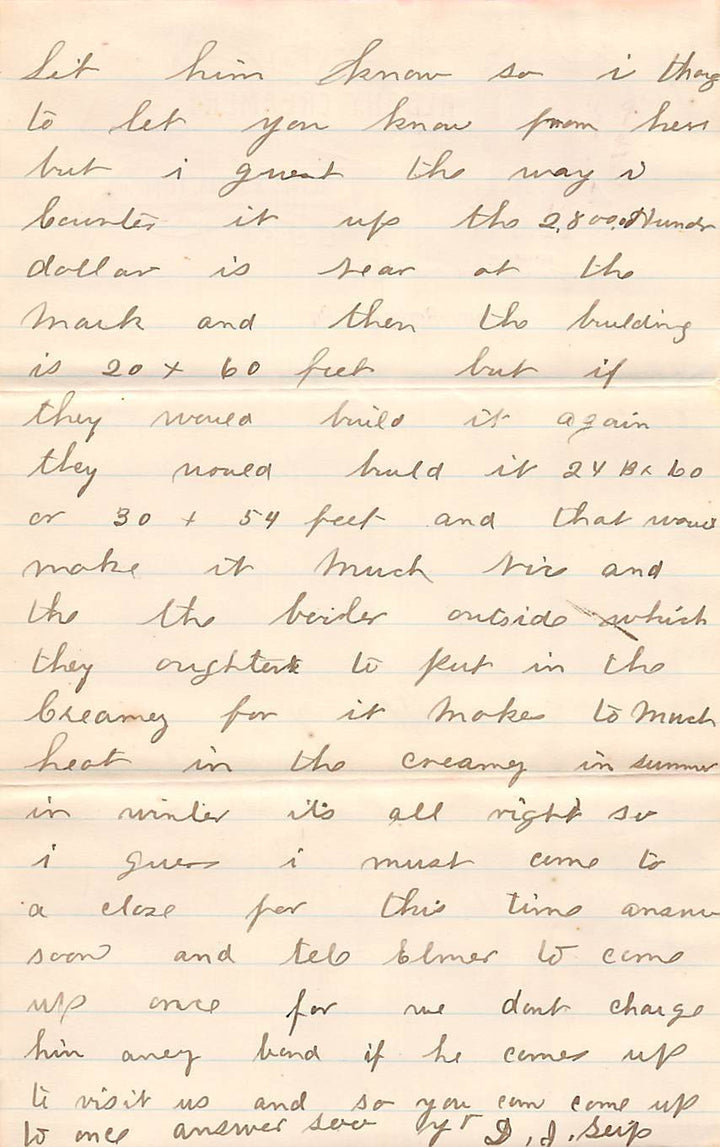 let him know so i thoug
to let you know from here
but i guest the way i
counted it up the 2,800.00 Hundr
dollar is near at the
mark and then the building
is 20 x 60 feet but if
they would build it again
they would build it 24 x 60
or 30 + 54 feet and that would
make it much nice and
the the boiler outside which
they oughten to put in the
Creamey for it makes to much
heat in the creamey in summer
in winter its all right so
i guess i must come to
a close for this time answer
soon and tell Elmer to come
up once for we dont charge
him aney bond if he comes up
to visit us and so you can come up
to once answer soo yr D. J. Seip